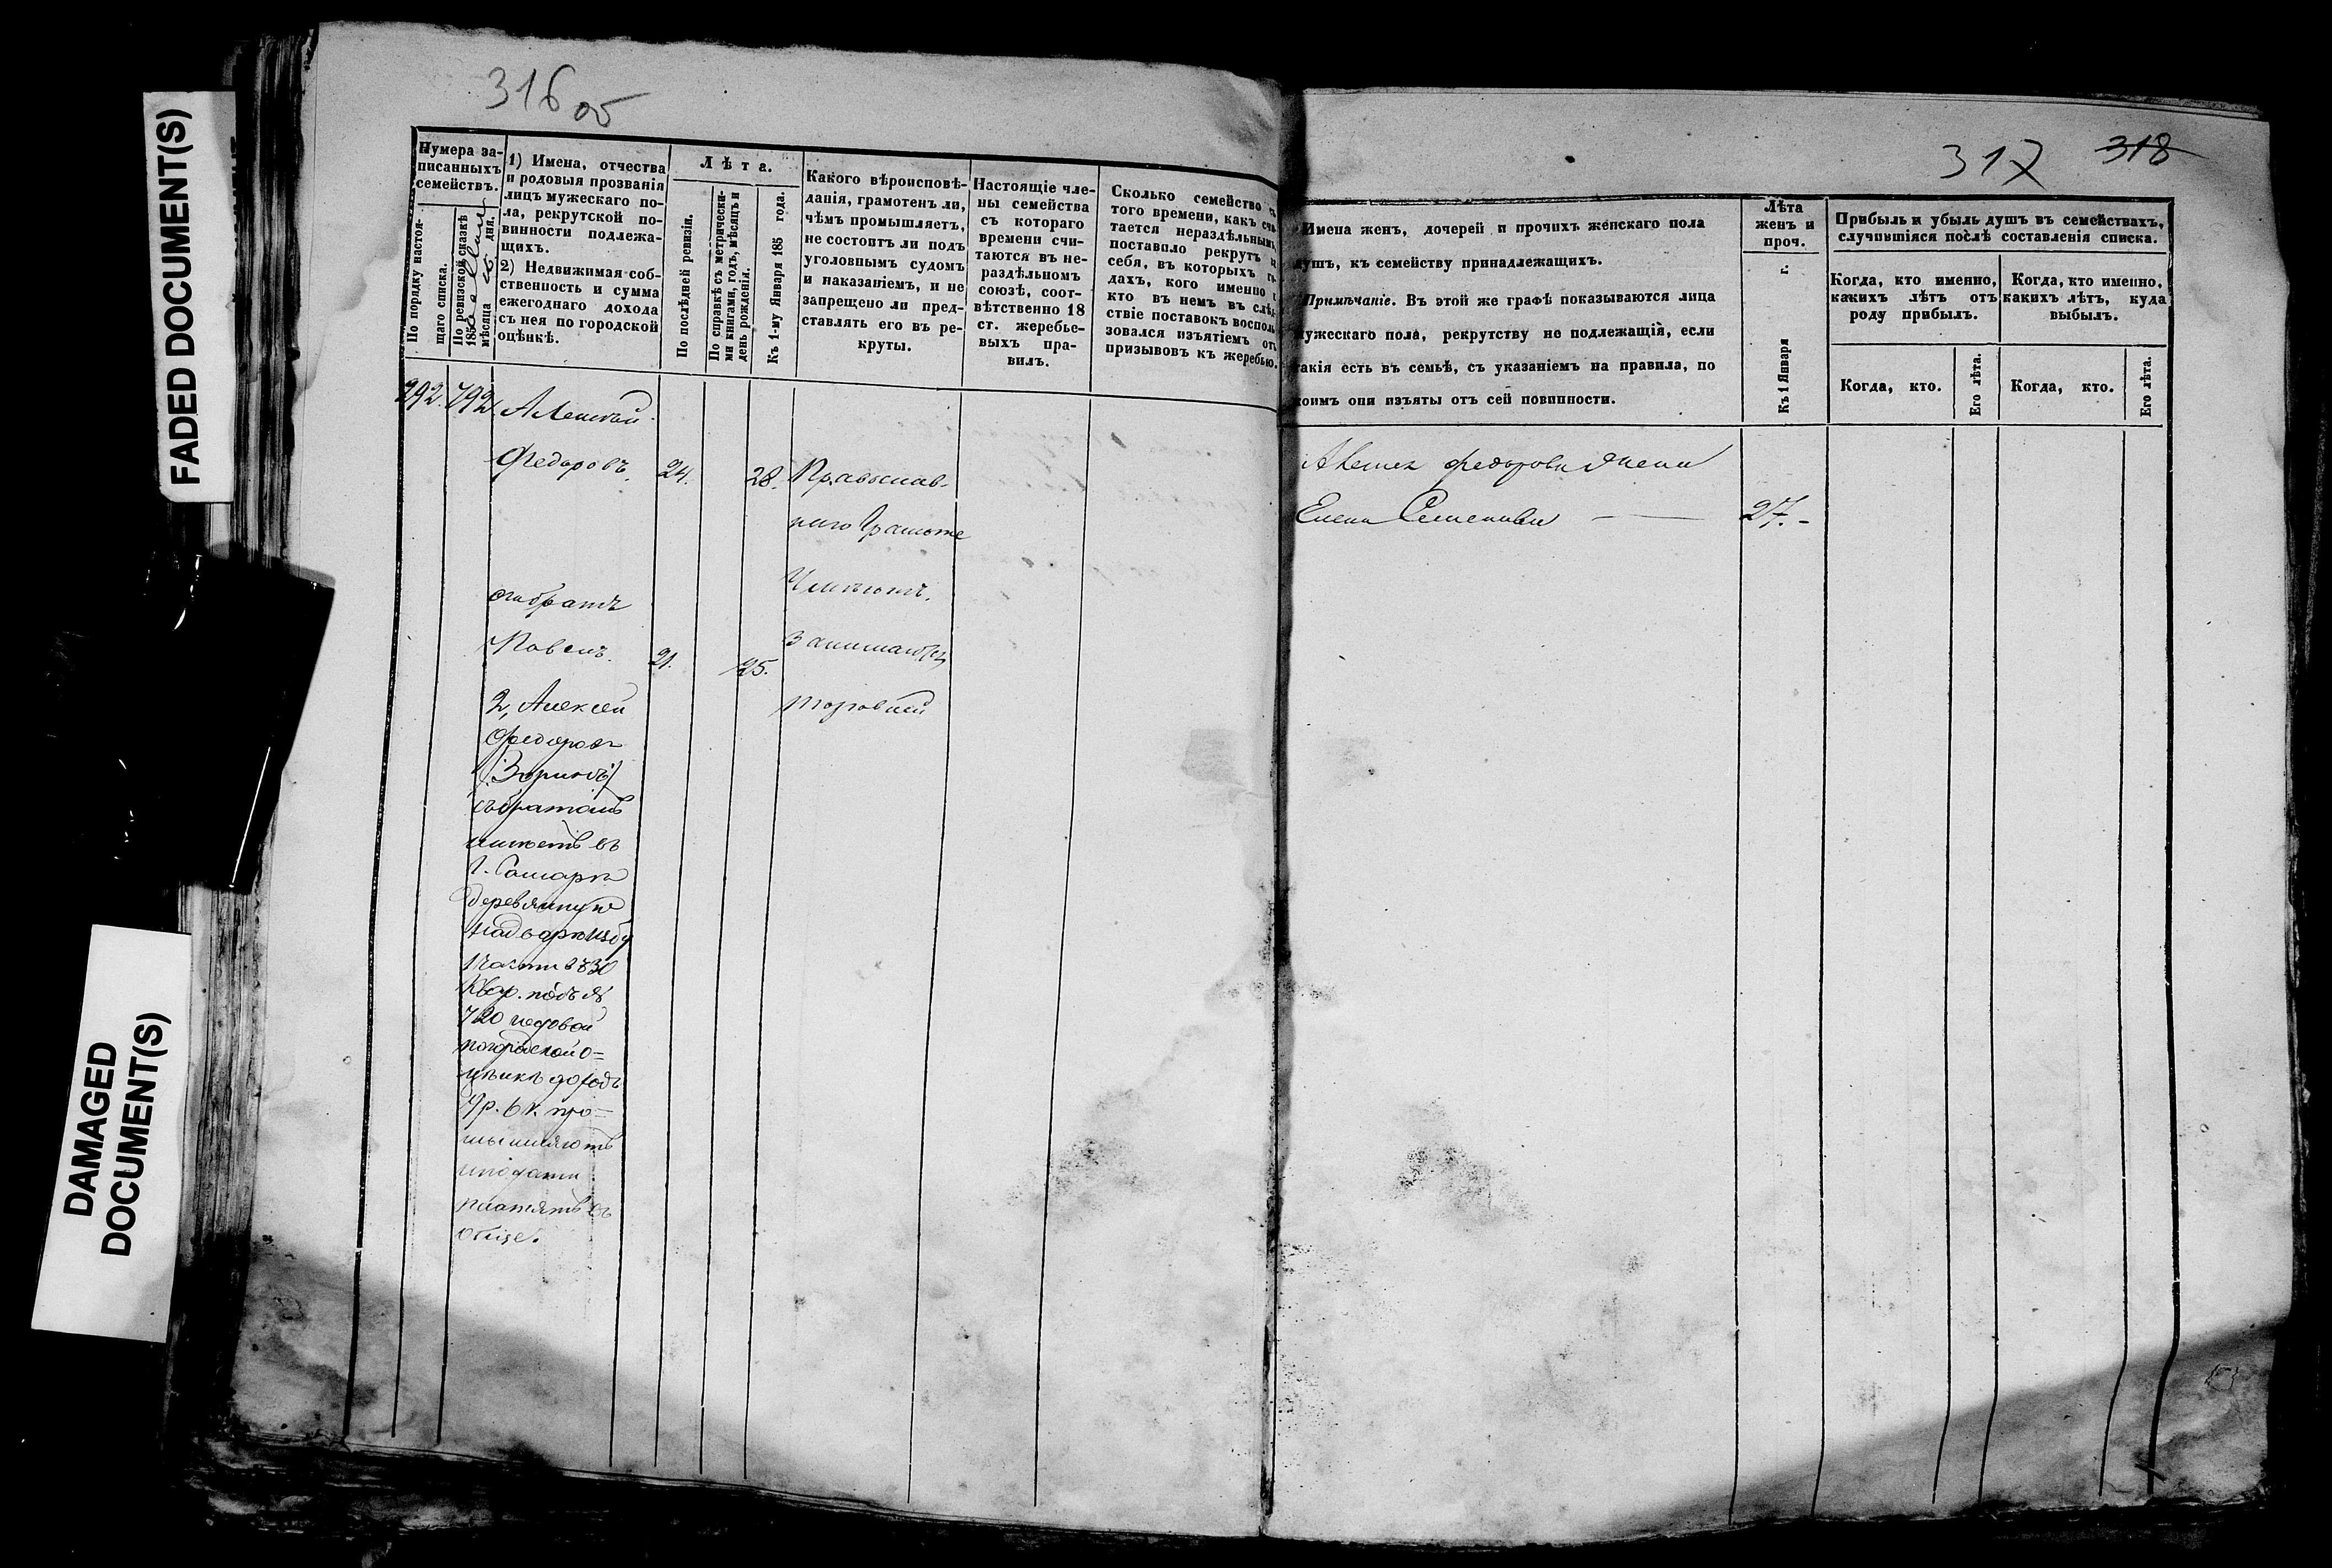 FADED DOCUMENT(S)
DAMAGED
DOCUMENT(S)
316 об
Нумера за-
писанныхъ
семействъ.
По порядку настоя-
щаго списка.
По ревизской сказкѣ
185
мѣсяца
дня.
1) Имена, отчества
и родовыя прозванія
лицъ мужескаго по-
ла, рекрутской по-
винности подлежа-
щихъ.
2) Недвижимая соб-
ственность и сумма
ежегоднаго дохода
съ нея по городской
оцѣнкѣ.
Лѣта.
По послѣдней ревизіи.
По справкѣ съ метрически-
ми книгами, годъ, мѣсяцъ и
день рожденія.
Къ 1-му Января 185 года.
Какого вѣроисповѣ-
данія, грамотенъ ли,
чѣмъ промышляетъ,
не состоитъ ли подъ
уголовнымъ судомъ
и наказаніемъ, и не
запрещено ли пред-
ставлять его въ ре-
круты.
Настоящіе чле-
ны семейства
съ котораго
времени счи-
таются въ не-
раздѣльномъ
союзѣ, соот-
вѣтственно 18
ст. жеребье-
выхъ пра-
вилъ.
Сколько семейство съ
того времени, какъ счи-
тается нераздѣльнымъ,
поставило рекрутъ за
себя, въ которыхъ го-
дахъ, кого именно и
кто въ немъ въ слѣд-
ствіе поставокъ восполь-
зовался изъятіемъ отъ
призывовъ къ жеребью.
792. 792. Алексѣй
Федоровъ. 24. 28. Православ-
наго Грамоте
его братъ
Умѣютъ.
Павелъ. 21. 25.
Занимаются
торговлей
2, Алексей
Федоровъ
(Зоринъ)
съ братомъ
имѣетъ въ
г. Самарѣ
деревянную
на дворѣ избу
1 части въ 30
Квар. подъ №
720 годовой
по городской о=
цѣнкѣ доходъ
9 р. 6 к. про=
мышляютъ
и подати
платятъ въ
обще.
317 318
Имена женъ, дочерей и прочихъ женскаго пола
душъ, къ семейству принадлежащихъ.
Примѣчаніе. Въ этой же графѣ показываются лица
мужескаго пола, рекрутству не подлежащія, если
такія есть въ семьѣ, съ указаніемъ на правила, по
коимъ они изъяты отъ сей повинности.
Лѣта
женъ и
проч.
Къ 1 Января г.
Прибыль и убыль душъ въ семействахъ,
случившіяся послѣ составленія списка.
Когда, кто именно,
какихъ лѣтъ отъ
роду прибылъ.
Когда, кто именно,
какихъ лѣтъ, куда
выбылъ.
Когда, кто.
Его лѣта.
Когда, кто.
Его лѣта.
Алексея Федорова жена
Елена Семенова — 27.-